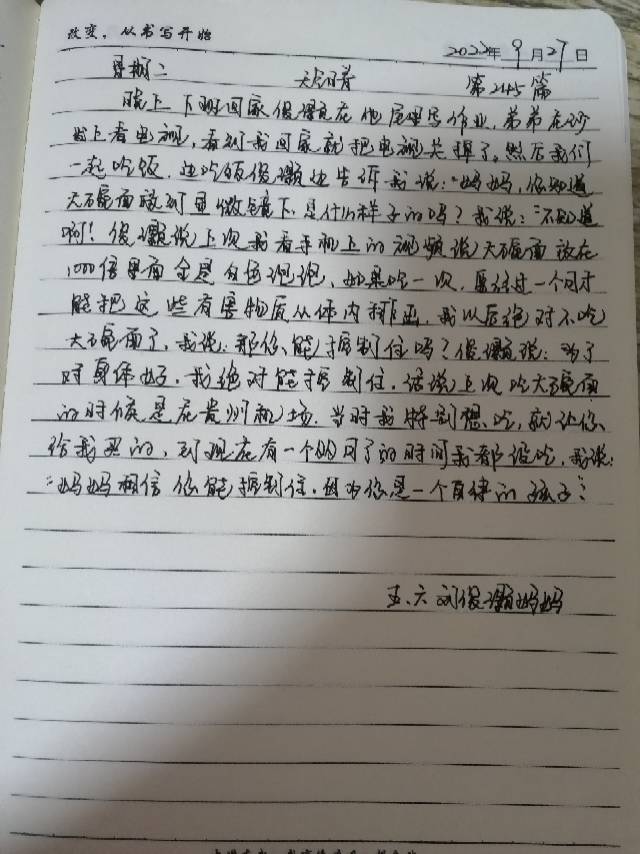 改变，从书写开始
2022年9月27日
星期二 天气晴 第245篇
晚上下班回家俊灏在他屋里写作业，弟弟在沙
发上看电视，看到我回家就把电视关掉了。然后我们
一起吃饭，边吃饭俊灏边告诉我说："妈妈，你知道
方便面放到显微镜下是什么样子的吗？我说："不知道
啊！俊灏说上次我看手机上的视频说方便面放在
1000倍里面全是白色泡泡，如果吃一次，要经过一个月才
能把这些有害物质从体内排出，我以后绝对不吃
方便面了，我说：那你能控制住吗？俊灏说：为了
对身体好，我绝对能控制住，话说上次吃方便面
的时候是在贵州机场，当时我特别想吃，就让你
给我买的，到现在有一个多月了的时间我都没吃，我说：
"妈妈相信你能控制住，因为你是一个自律的孩子"
五、六 刘俊灏妈妈